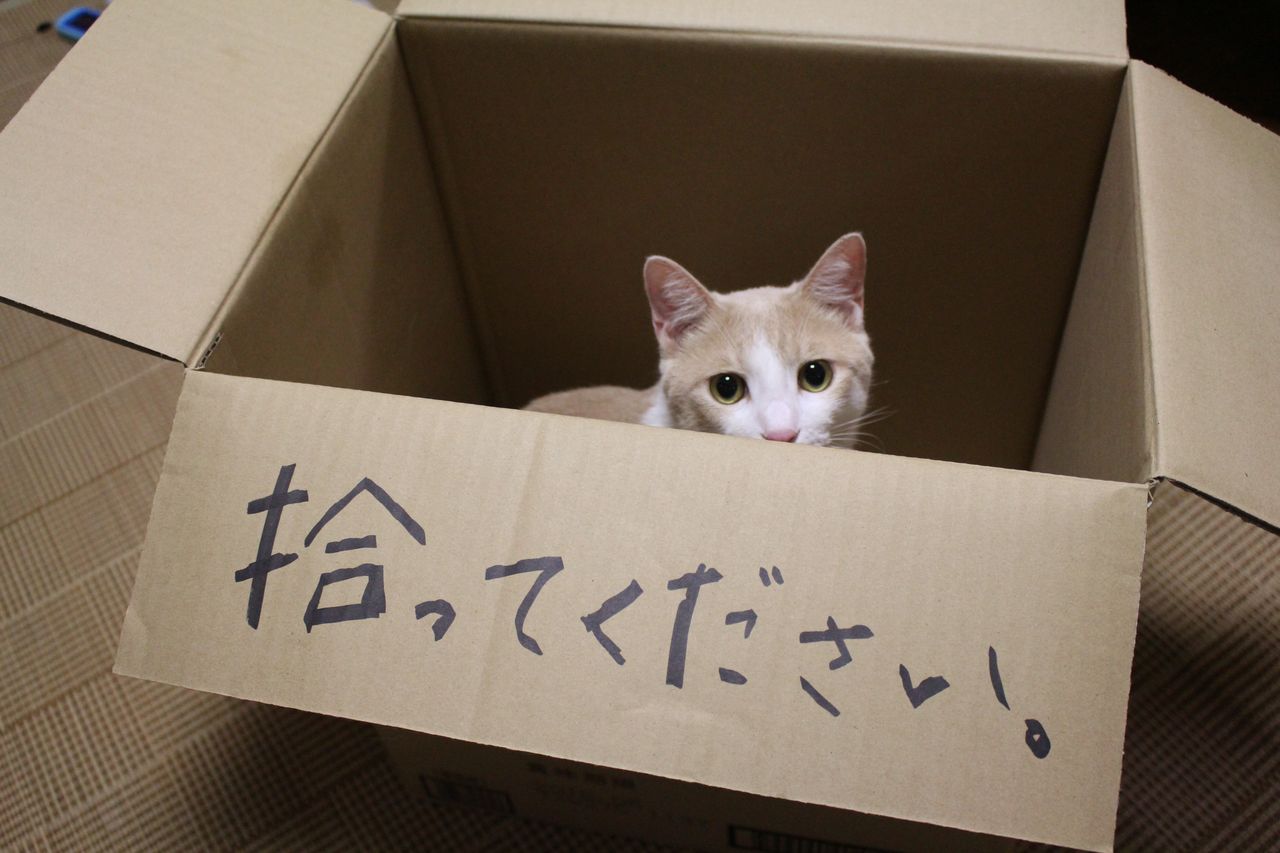 拾ってください。